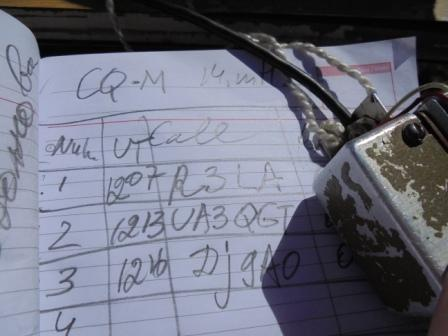 CQ-M 14 mH
Num. UT Call
1 1207 R3LA
2 1213 UA3QGT
3 1216 Dj9AO
4